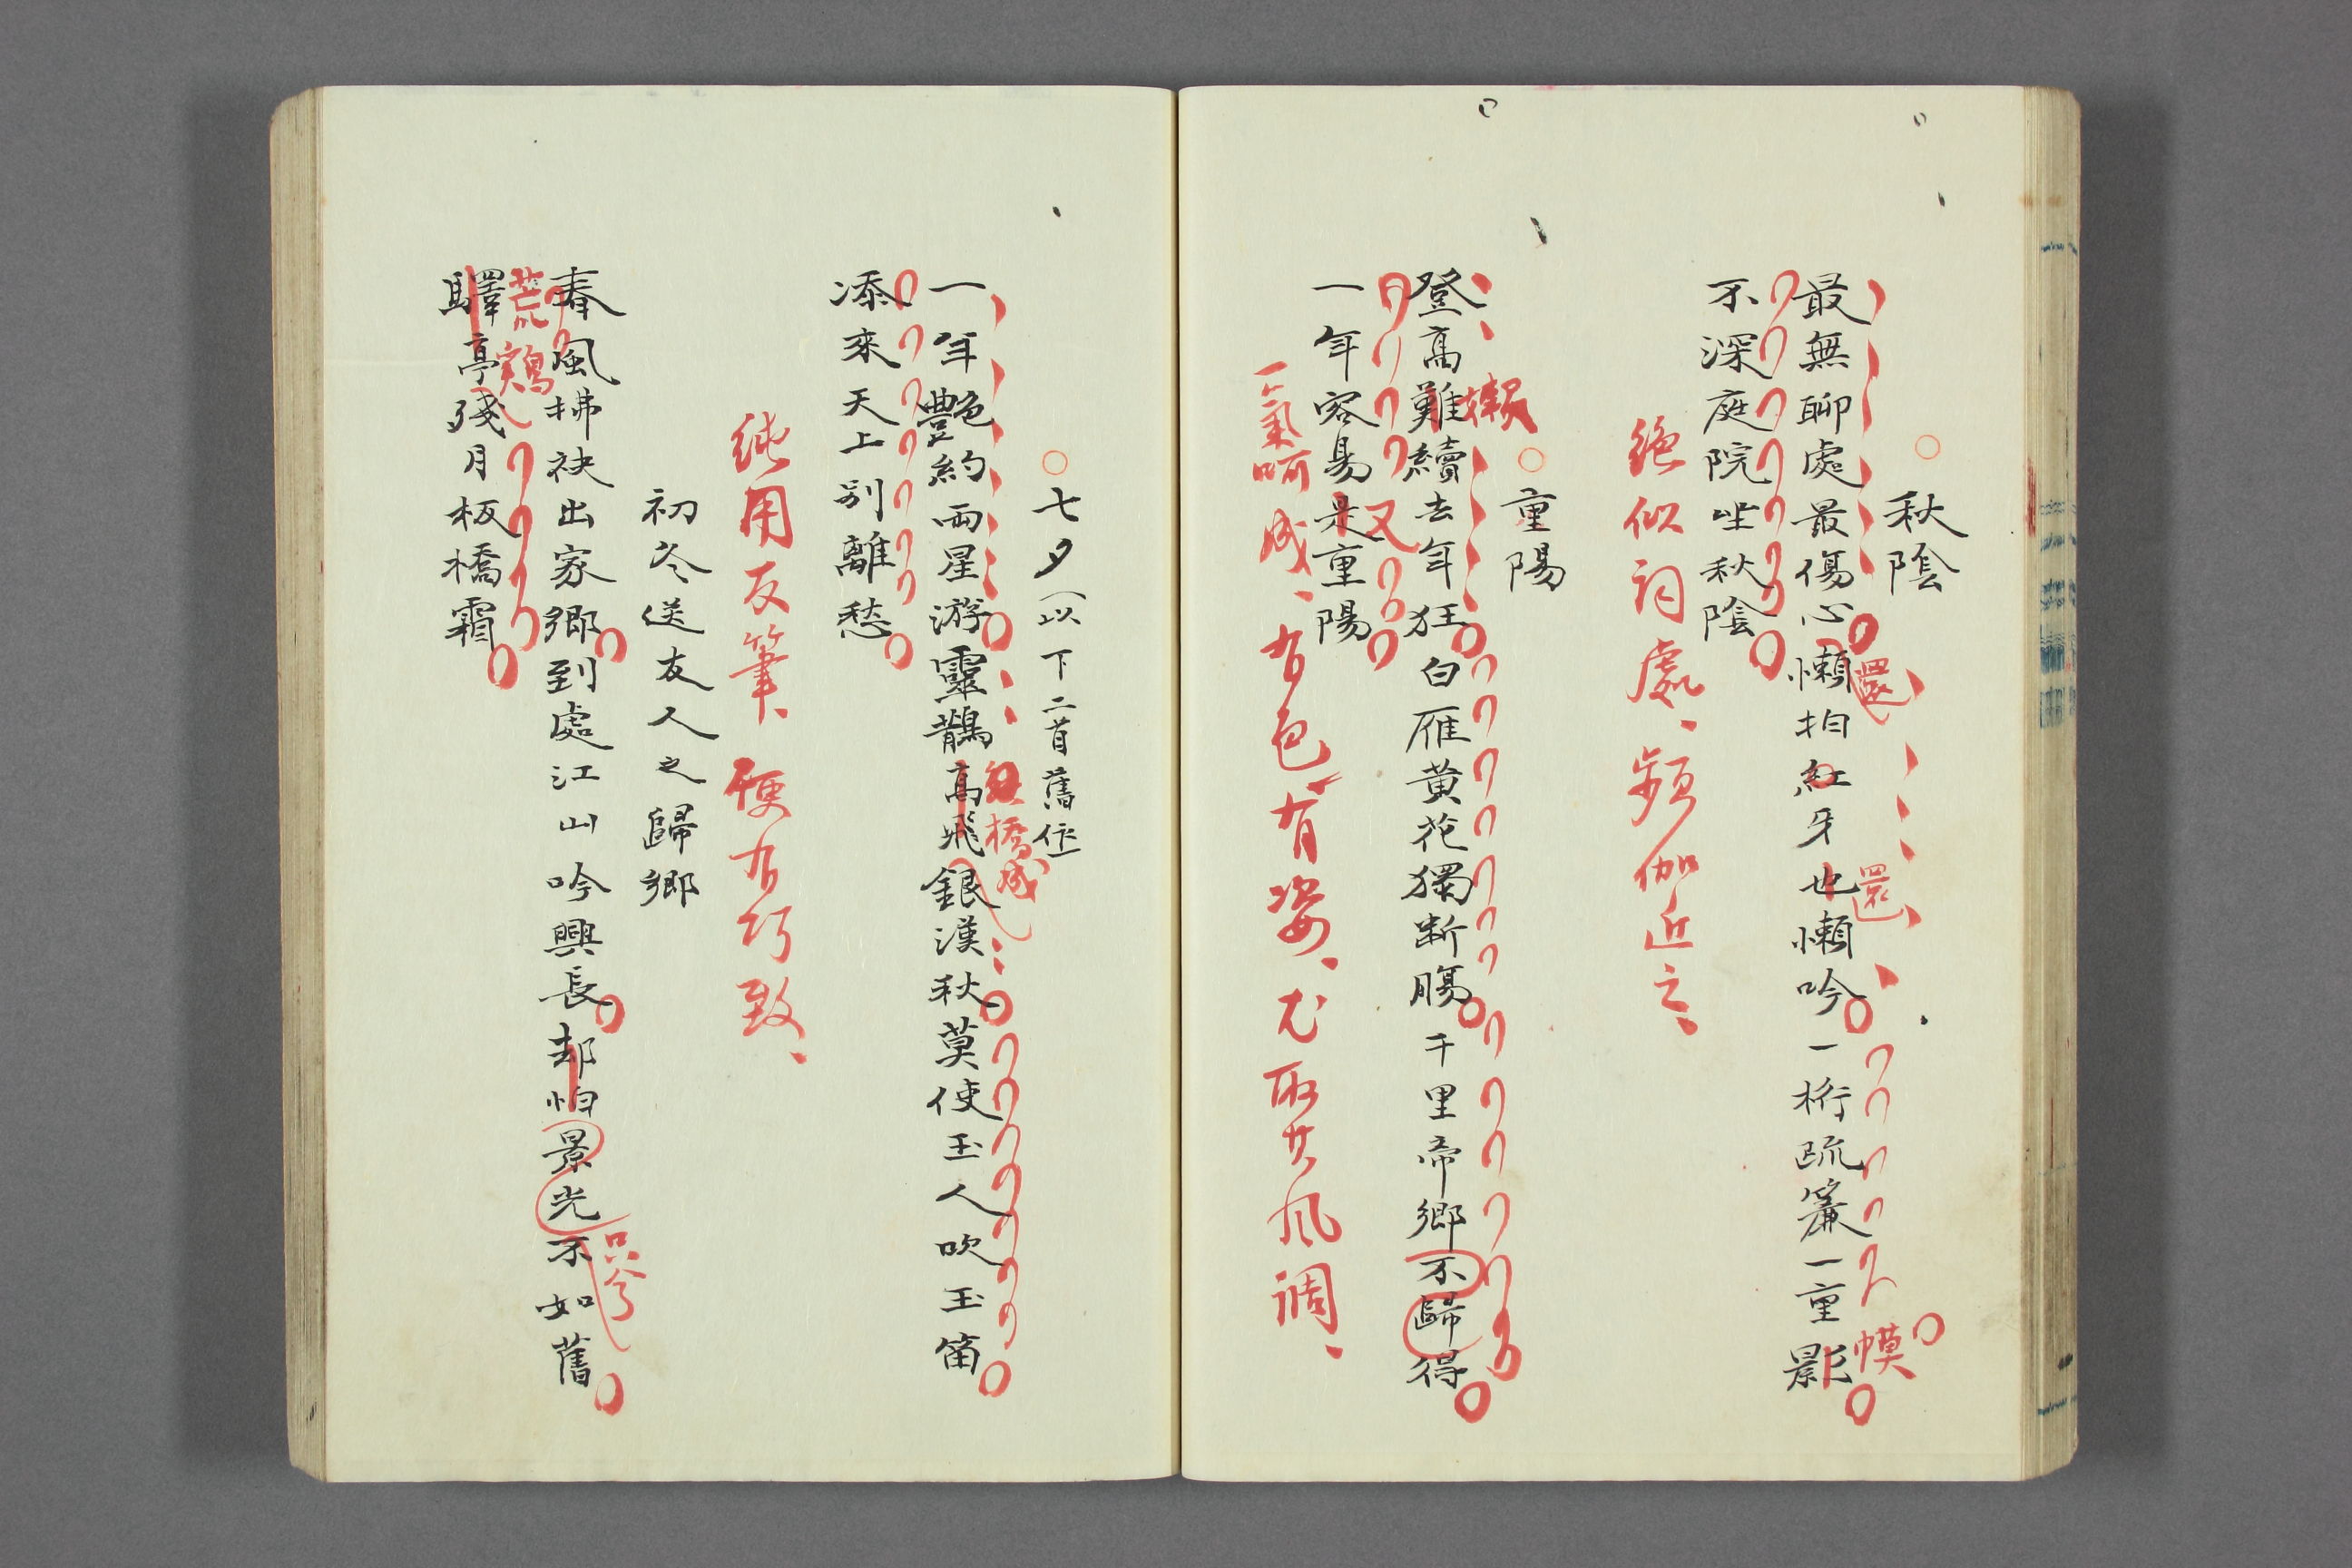 秋陰
最無聊處最傷心懶拍紅牙也懶吟一桁疏簾一重影
還
還
幙
不深庭院坐秋陰
絶似詞處、頻伽近之、
重陽
登高難續去年狂白雁黃花獨斷腸千里帝鄉不歸得
懶
一年容易是重陽
又
一氣呵成、有色有姿、尤取其風調、
七夕（以下二首舊作）
一年艷約兩星游靈鵲高飛銀漢秋莫使玉人吹玉笛
橋成
添來天上別離愁
純用反筆、便有巧致、
初冬送友人之歸鄉
春風拂袂出家鄉到處江山吟興長却怕景光不如舊
只今
驛亭殘月板橋霜
荒鷄